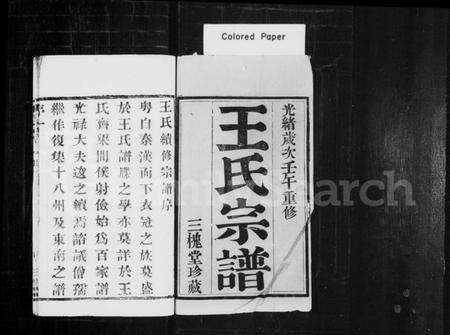 Colored Paper
光緒歲次壬午重修
王氏宗譜
三槐堂珍藏
王氏續修宗譜序
粵自秦漢而下衣冠之族莫盛
於王氏譜牒之學亦莫詳於王
氏齊梁間僕射儉始為百家譜
光祿大夫逡之續焉諮議僧孺
繼作復集十八州及東南之譜